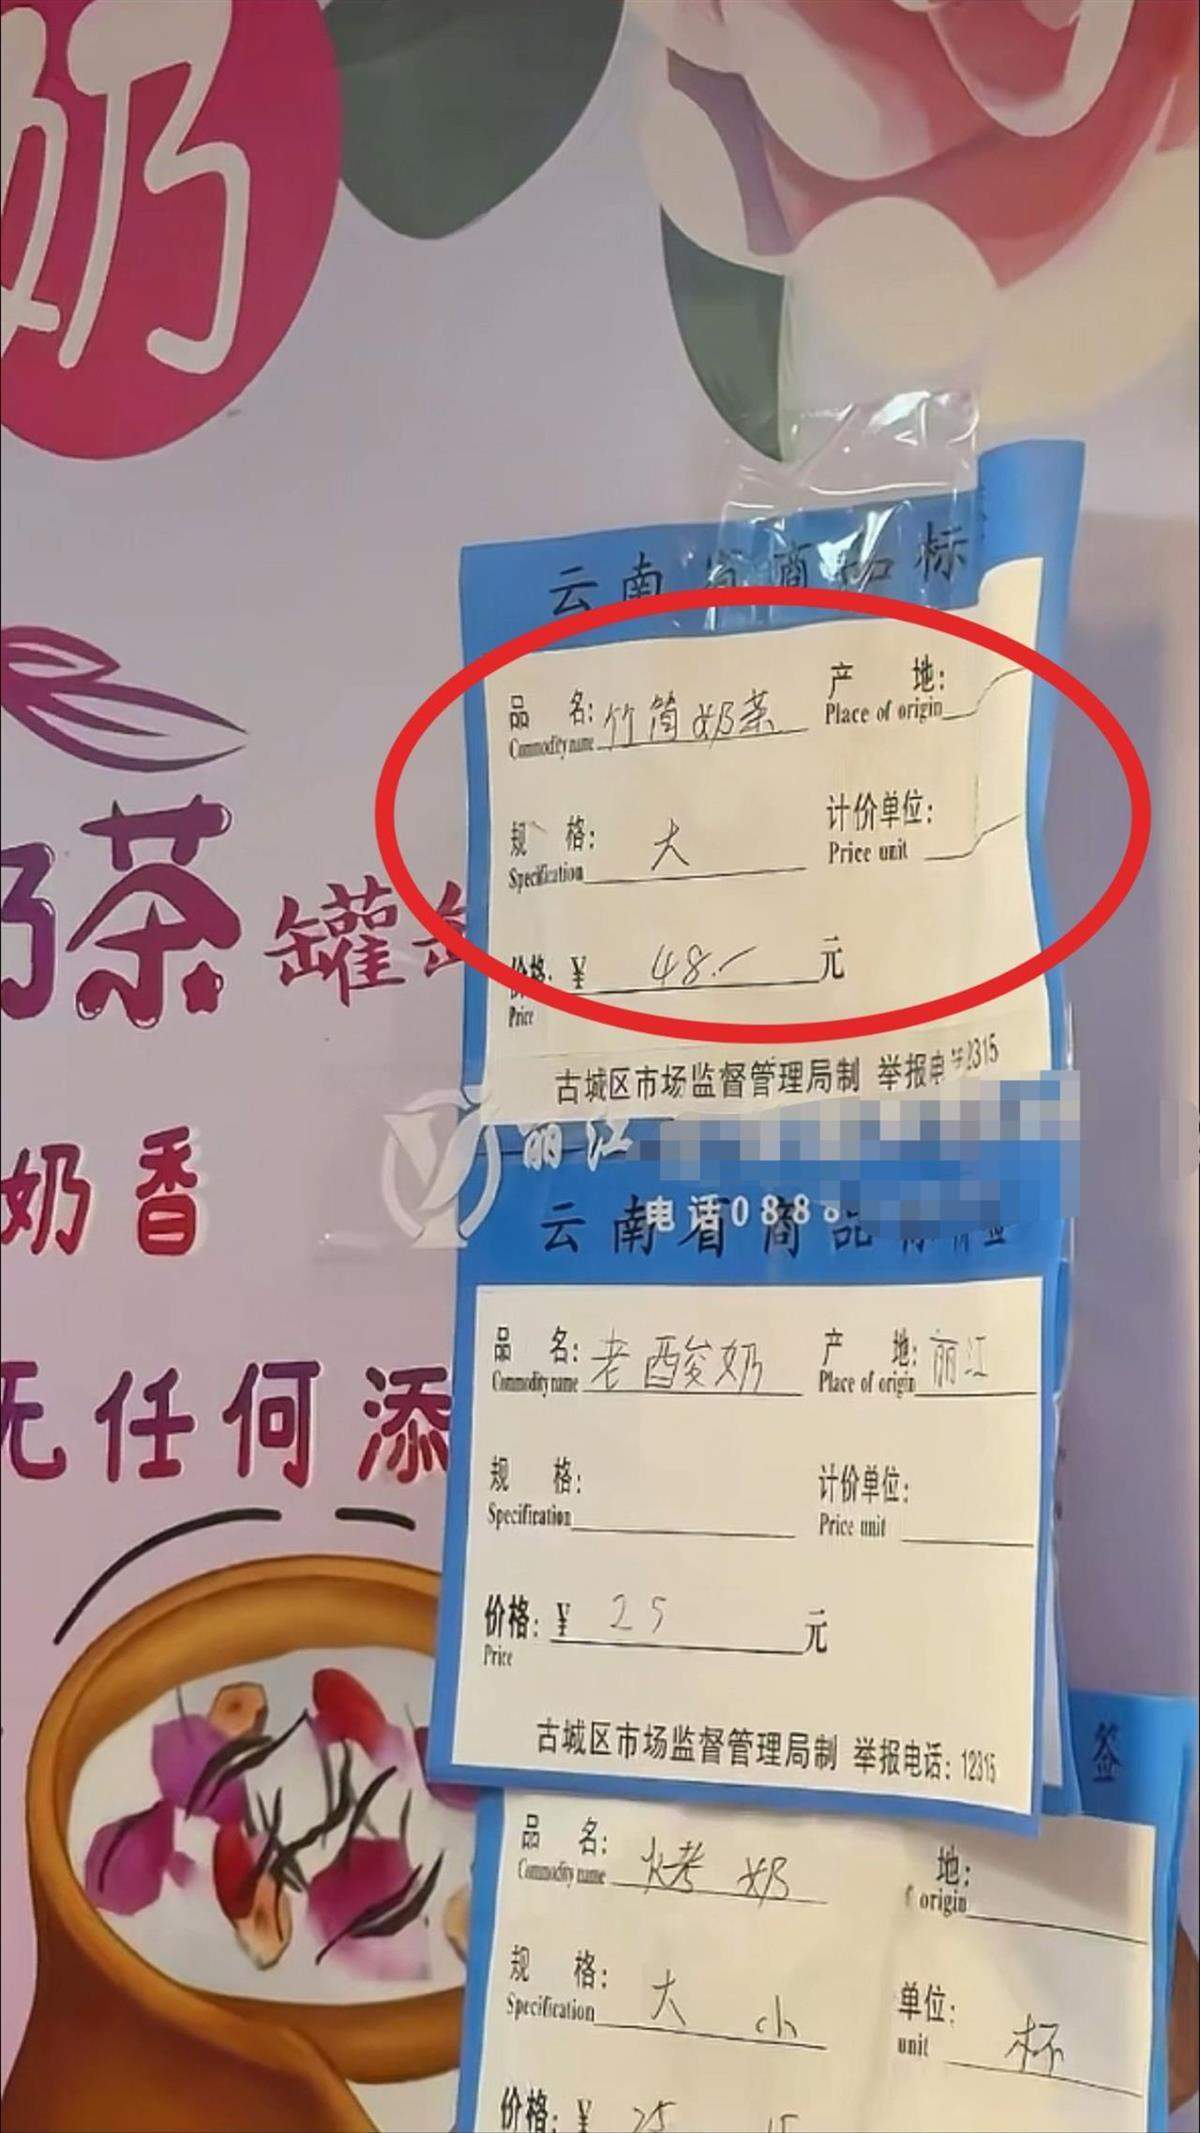 奶
云南省商品标
品 名: 竹筒奶茶 产 地:
Commodity name Place of origin
规 格: 大 计价单位:
Specification Price unit
奶茶 罐
价格: ¥ 48.- 元
Price
古城区市场监督管理局制 举报电 12315
丽江
奶香
电话0888
云南省商品标价签
品 名: 老酸奶 产 地: 丽江
Commodity name Place of origin
无任何添
规 格: 计价单位:
Specification Price unit
价格: ¥ 25 元
Price
古城区市场监督管理局制 举报电话: 12315
签
品 名: 烤奶 地:
Commodity name origin
规 格: 大 小 单位: 杯
Specification unit
价格: ¥ 25 15